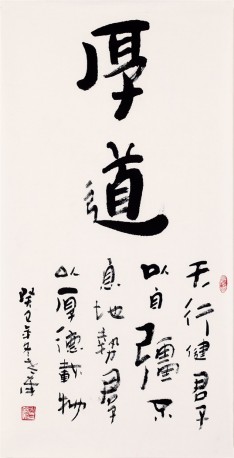 厚道
天行健君子
以自彊不
息地勢君子
以厚德載物
癸巳年